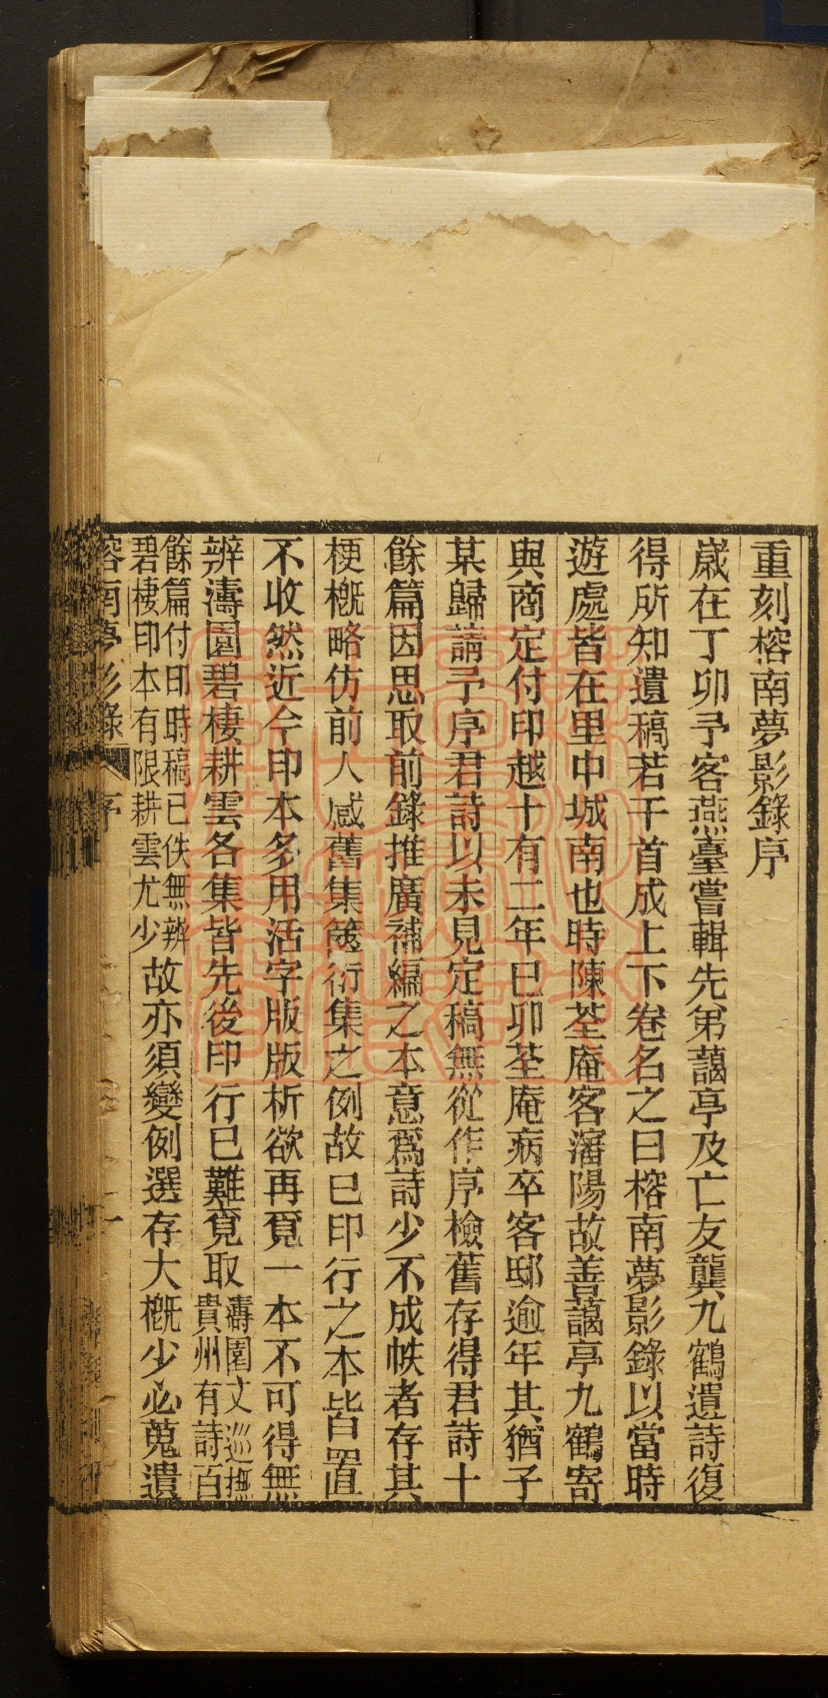 重刻榕南夢影錄序
歲在丁卯予客燕臺嘗輯先弟藹亭及亡友龔九鶴遺詩復
得所知遺稿若干首成上下卷名之曰榕南夢影錄以當時
遊處皆在里中城南也時陳荃庵客瀋陽故善藹亭九鶴寄
與商定付印越十有二年己卯荃庵病卒客邸逾年其猶子
某歸請予序君詩以未見定稿無從作序檢舊存得君詩十
餘篇因思取前錄推廣補編之本意爲詩少不成帙者存其
梗槪略仿前人感舊集篋衍集之例故已印行之本皆置
不收然近今印本多用活字版版析欲再覓一本不可得無
辨濤園碧棲耕雲各集皆先後印行已難覓取
濤園丈巡撫
貴州有詩百
餘篇付印時稿已佚無辨
碧棲印本有限耕雲尤少
故亦須變例選存大槪少必蒐遺
榕南夢影錄
序
一